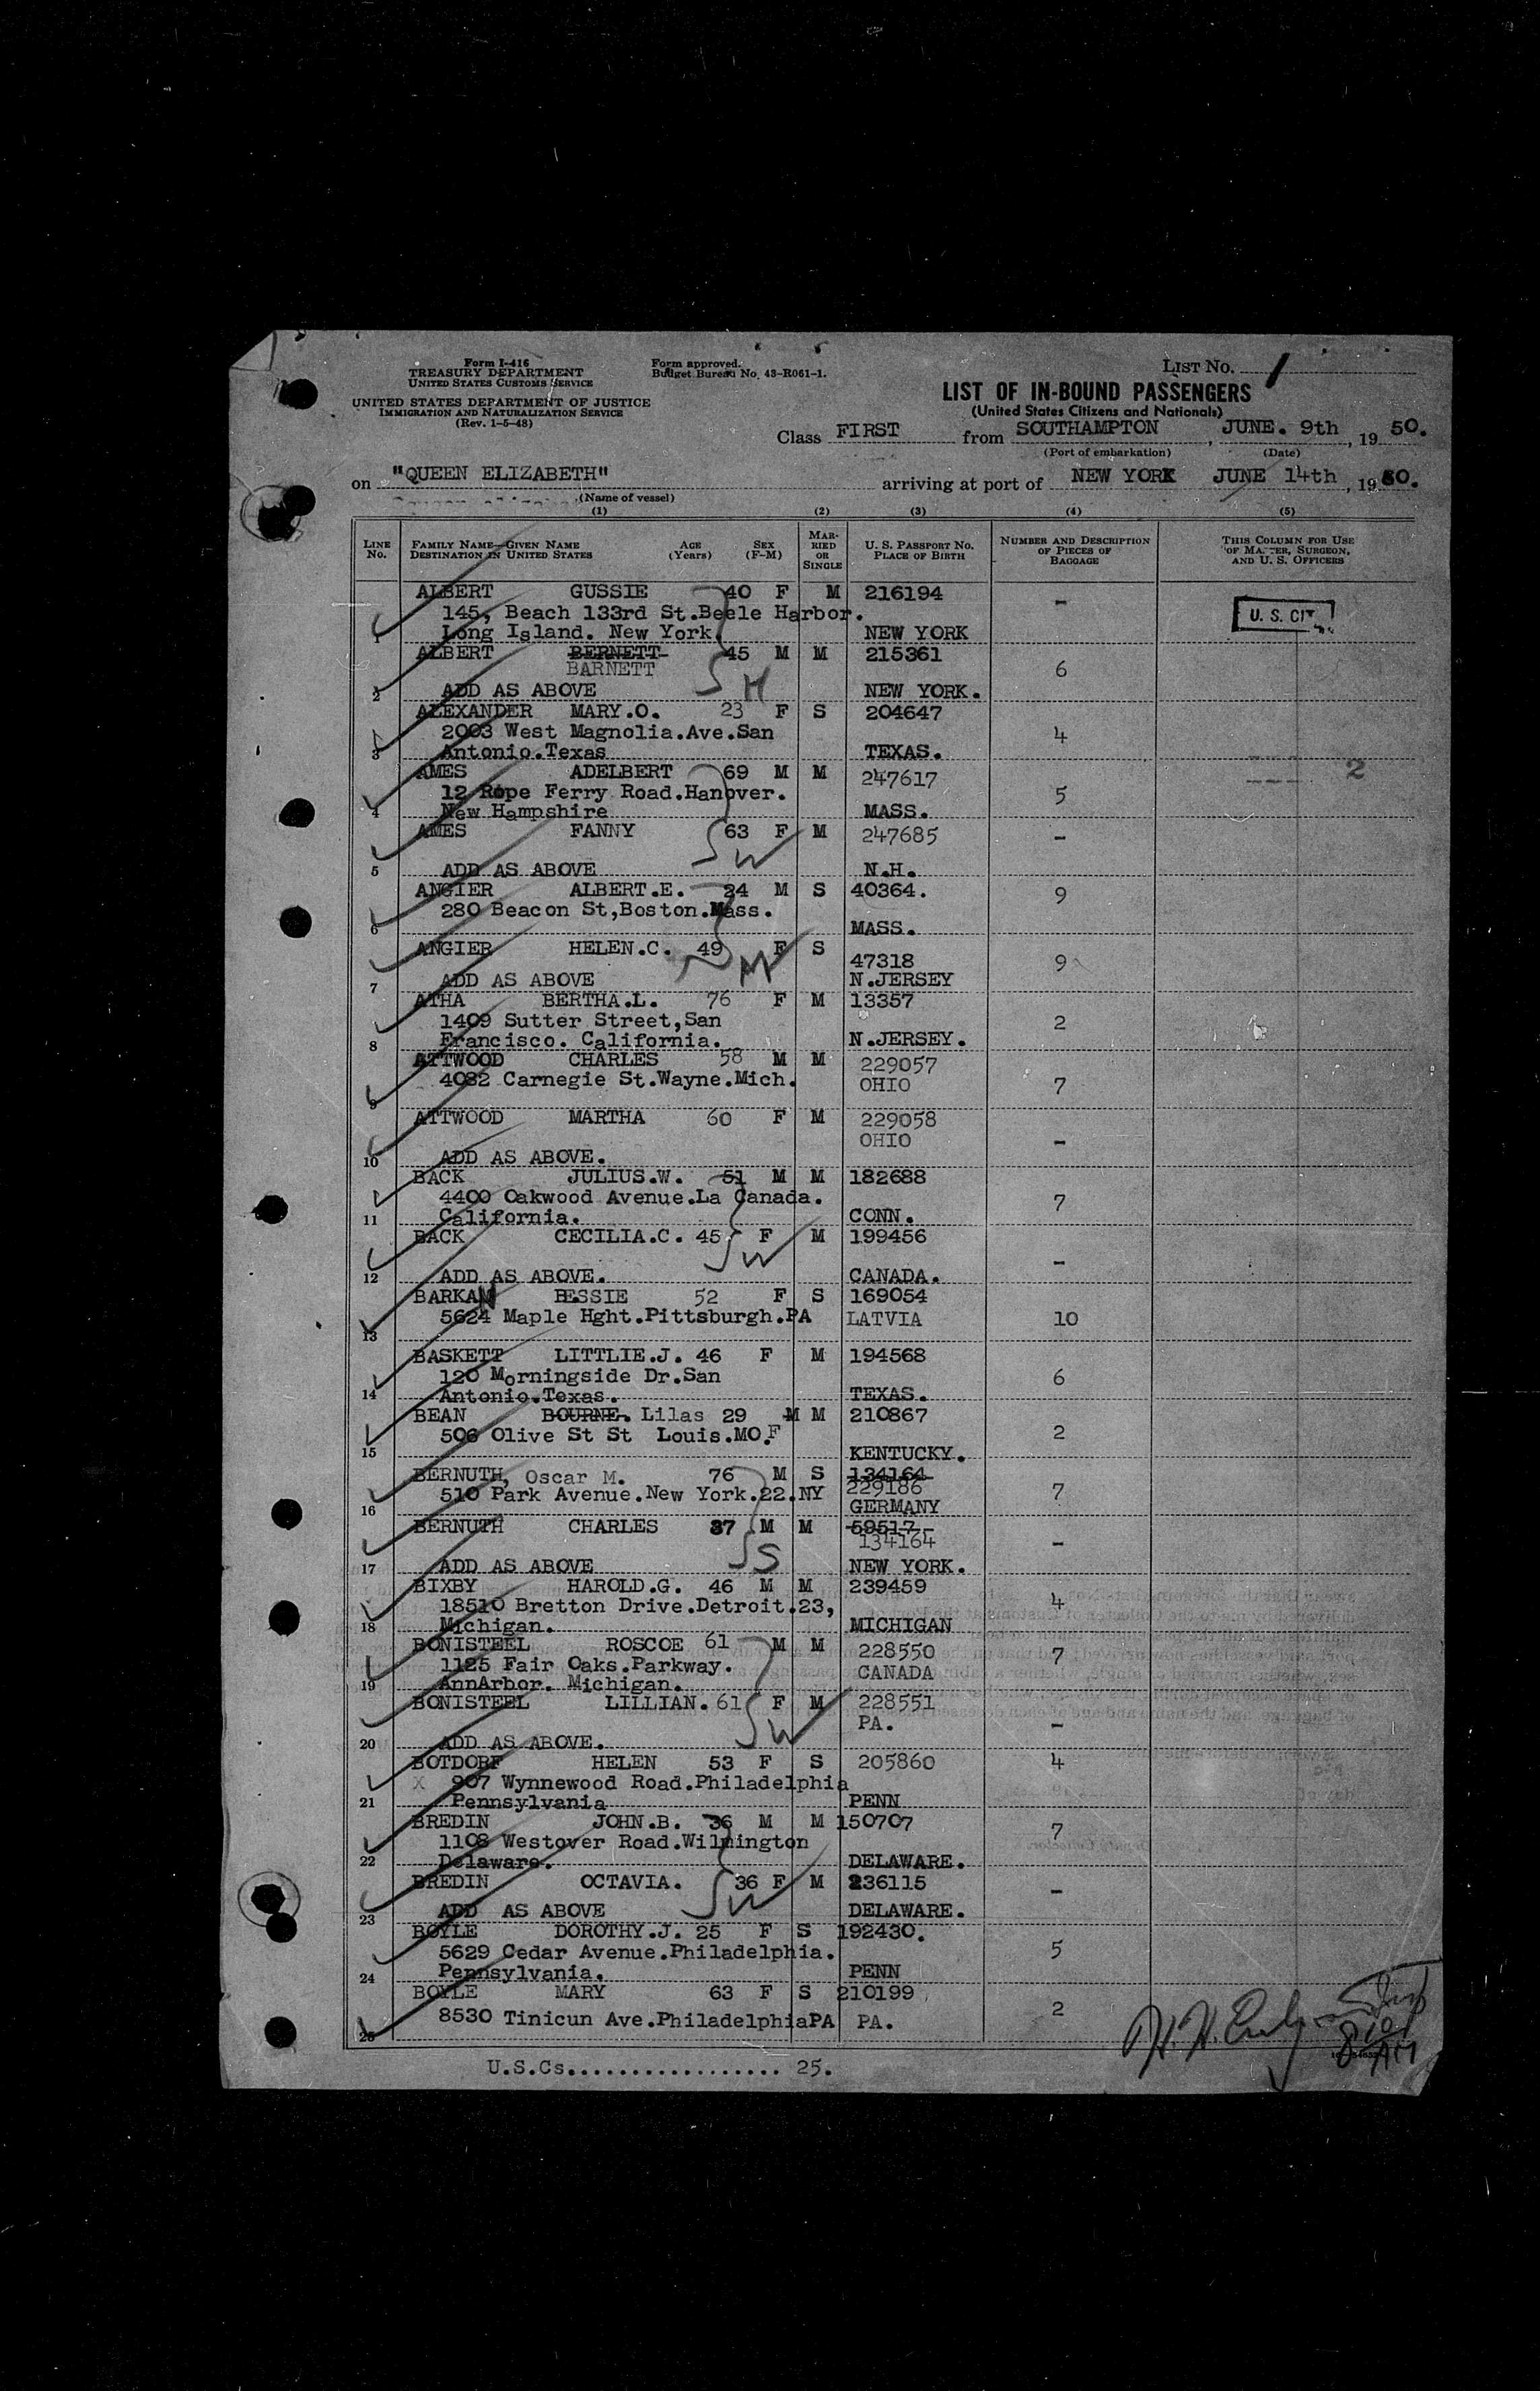 Form I-416
TREASURY DEPARTMENT
UNITED STATES CUSTOMS SERVICE
UNITED STATES DEPARTMENT OF JUSTICE
IMMIGRATION AND NATURALIZATION SERVICE
(Rev. 1-5-48)
Form approved.
Budget Bureau No. 43-R061-1.
LIST No. 1
LIST OF IN-BOUND PASSENGERS
(United States Citizens and Nationals)
Class FIRST from SOUTHAMPTON, JUNE. 9th, 19 50.
(Port of embarkation) (Date)
on "QUEEN ELIZABETH" arriving at port of NEW YORK JUNE 14th, 19 50.
(Name of vessel)
(1) (2) (3) (4) (5)
LINE No. FAMILY NAME—GIVEN NAME DESTINATION IN UNITED STATES AGE (Years) SEX (F-M) MARRIED OR SINGLE U. S. PASSPORT NO. PLACE OF BIRTH NUMBER AND DESCRIPTION OF PIECES OF BAGGAGE THIS COLUMN FOR USE OF MASTER, SURGEON, AND U. S. OFFICERS
ALBERT GUSSIE 40 F M 216194 -
145, Beach 133rd St.Beele Harbor. U. S. CIT
1 Long Island. New York. NEW YORK
ALBERT BERNETT 45 M M 215361
BARNETT 6
2 ADD AS ABOVE H NEW YORK.
ALEXANDER MARY.O. 23 F S 204647
2003 West Magnolia.Ave.San 4
3 Antonio.Texas TEXAS.
AMES ADELBERT 69 M M 247617 2
12 Rope Ferry Road.Hanover. 5
4 New Hampshire MASS.
AMES FANNY 63 F M 247685 -
W
5 ADD AS ABOVE N.H.
ANGIER ALBERT.E. 24 M S 40364. 9
280 Beacon St,Boston.Mass.
6 MASS.
ANGIER HELEN.C. 49 F S
M 47318 9
7 ADD AS ABOVE N.JERSEY
ATHA BERTHA.L. 76 F M 13357
1409 Sutter Street,San 2
8 Francisco. California. N.JERSEY.
ATTWOOD CHARLES 58 M M 229057
4082 Carnegie St.Wayne.Mich. OHIO 7
9
ATTWOOD MARTHA 60 F M 229058
OHIO -
10 ADD AS ABOVE.
BACK JULIUS.W. 51 M M 182688
4400 Oakwood Avenue.La Canada. 7
11 California. CONN.
BACK CECILIA.C. 45 F M 199456
W -
12 ADD AS ABOVE. CANADA.
BARKAN BESSIE 52 F S 169054
5624 Maple Hght.Pittsburgh.PA LATVIA 10
13
BASKETT LITTLIE.J. 46 F M 194568
120 Morningside Dr.San 6
14 Antonio.Texas. TEXAS.
BEAN BOURNE. Lilas 29 M M 210867
506 Olive St St Louis.MO. F 2
15 KENTUCKY.
BERNUTH, Oscar M. 76 M S 134164
510 Park Avenue.New York.22.NY 229186 7
16 GERMANY
BERNUTH CHARLES 37 M M 59517
S 134164 -
17 ADD AS ABOVE NEW YORK.
BIXBY HAROLD.G. 46 M M 239459
18510 Bretton Drive.Detroit.23, 4
18 Michigan. MICHIGAN
BONISTEEL ROSCOE 61 M M 228550 7
1125 Fair Oaks.Parkway. CANADA
19 AnnArbor. Michigan.
BONISTEEL LILLIAN. 61 F M 228551
W PA. -
20 ADD AS ABOVE.
BOTDORF HELEN 53 F S 205860 4
X 907 Wynnewood Road.Philadelphia
21 Pennsylvania PENN
BREDIN JOHN.B. 36 M M 150707 7
1108 Westover Road.Wilmington
22 Delaware. DELAWARE.
BREDIN OCTAVIA. 36 F M 236115 -
W
23 ADD AS ABOVE DELAWARE.
BOYLE DOROTHY.J. 25 F S 192430.
5629 Cedar Avenue.Philadelphia. 5
24 Pennsylvania. PENN
BOYLE MARY 63 F S 210199 2
25 8530 Tinicun Ave.PhiladelphiaPA PA.
U.S.Cs.................. 25.